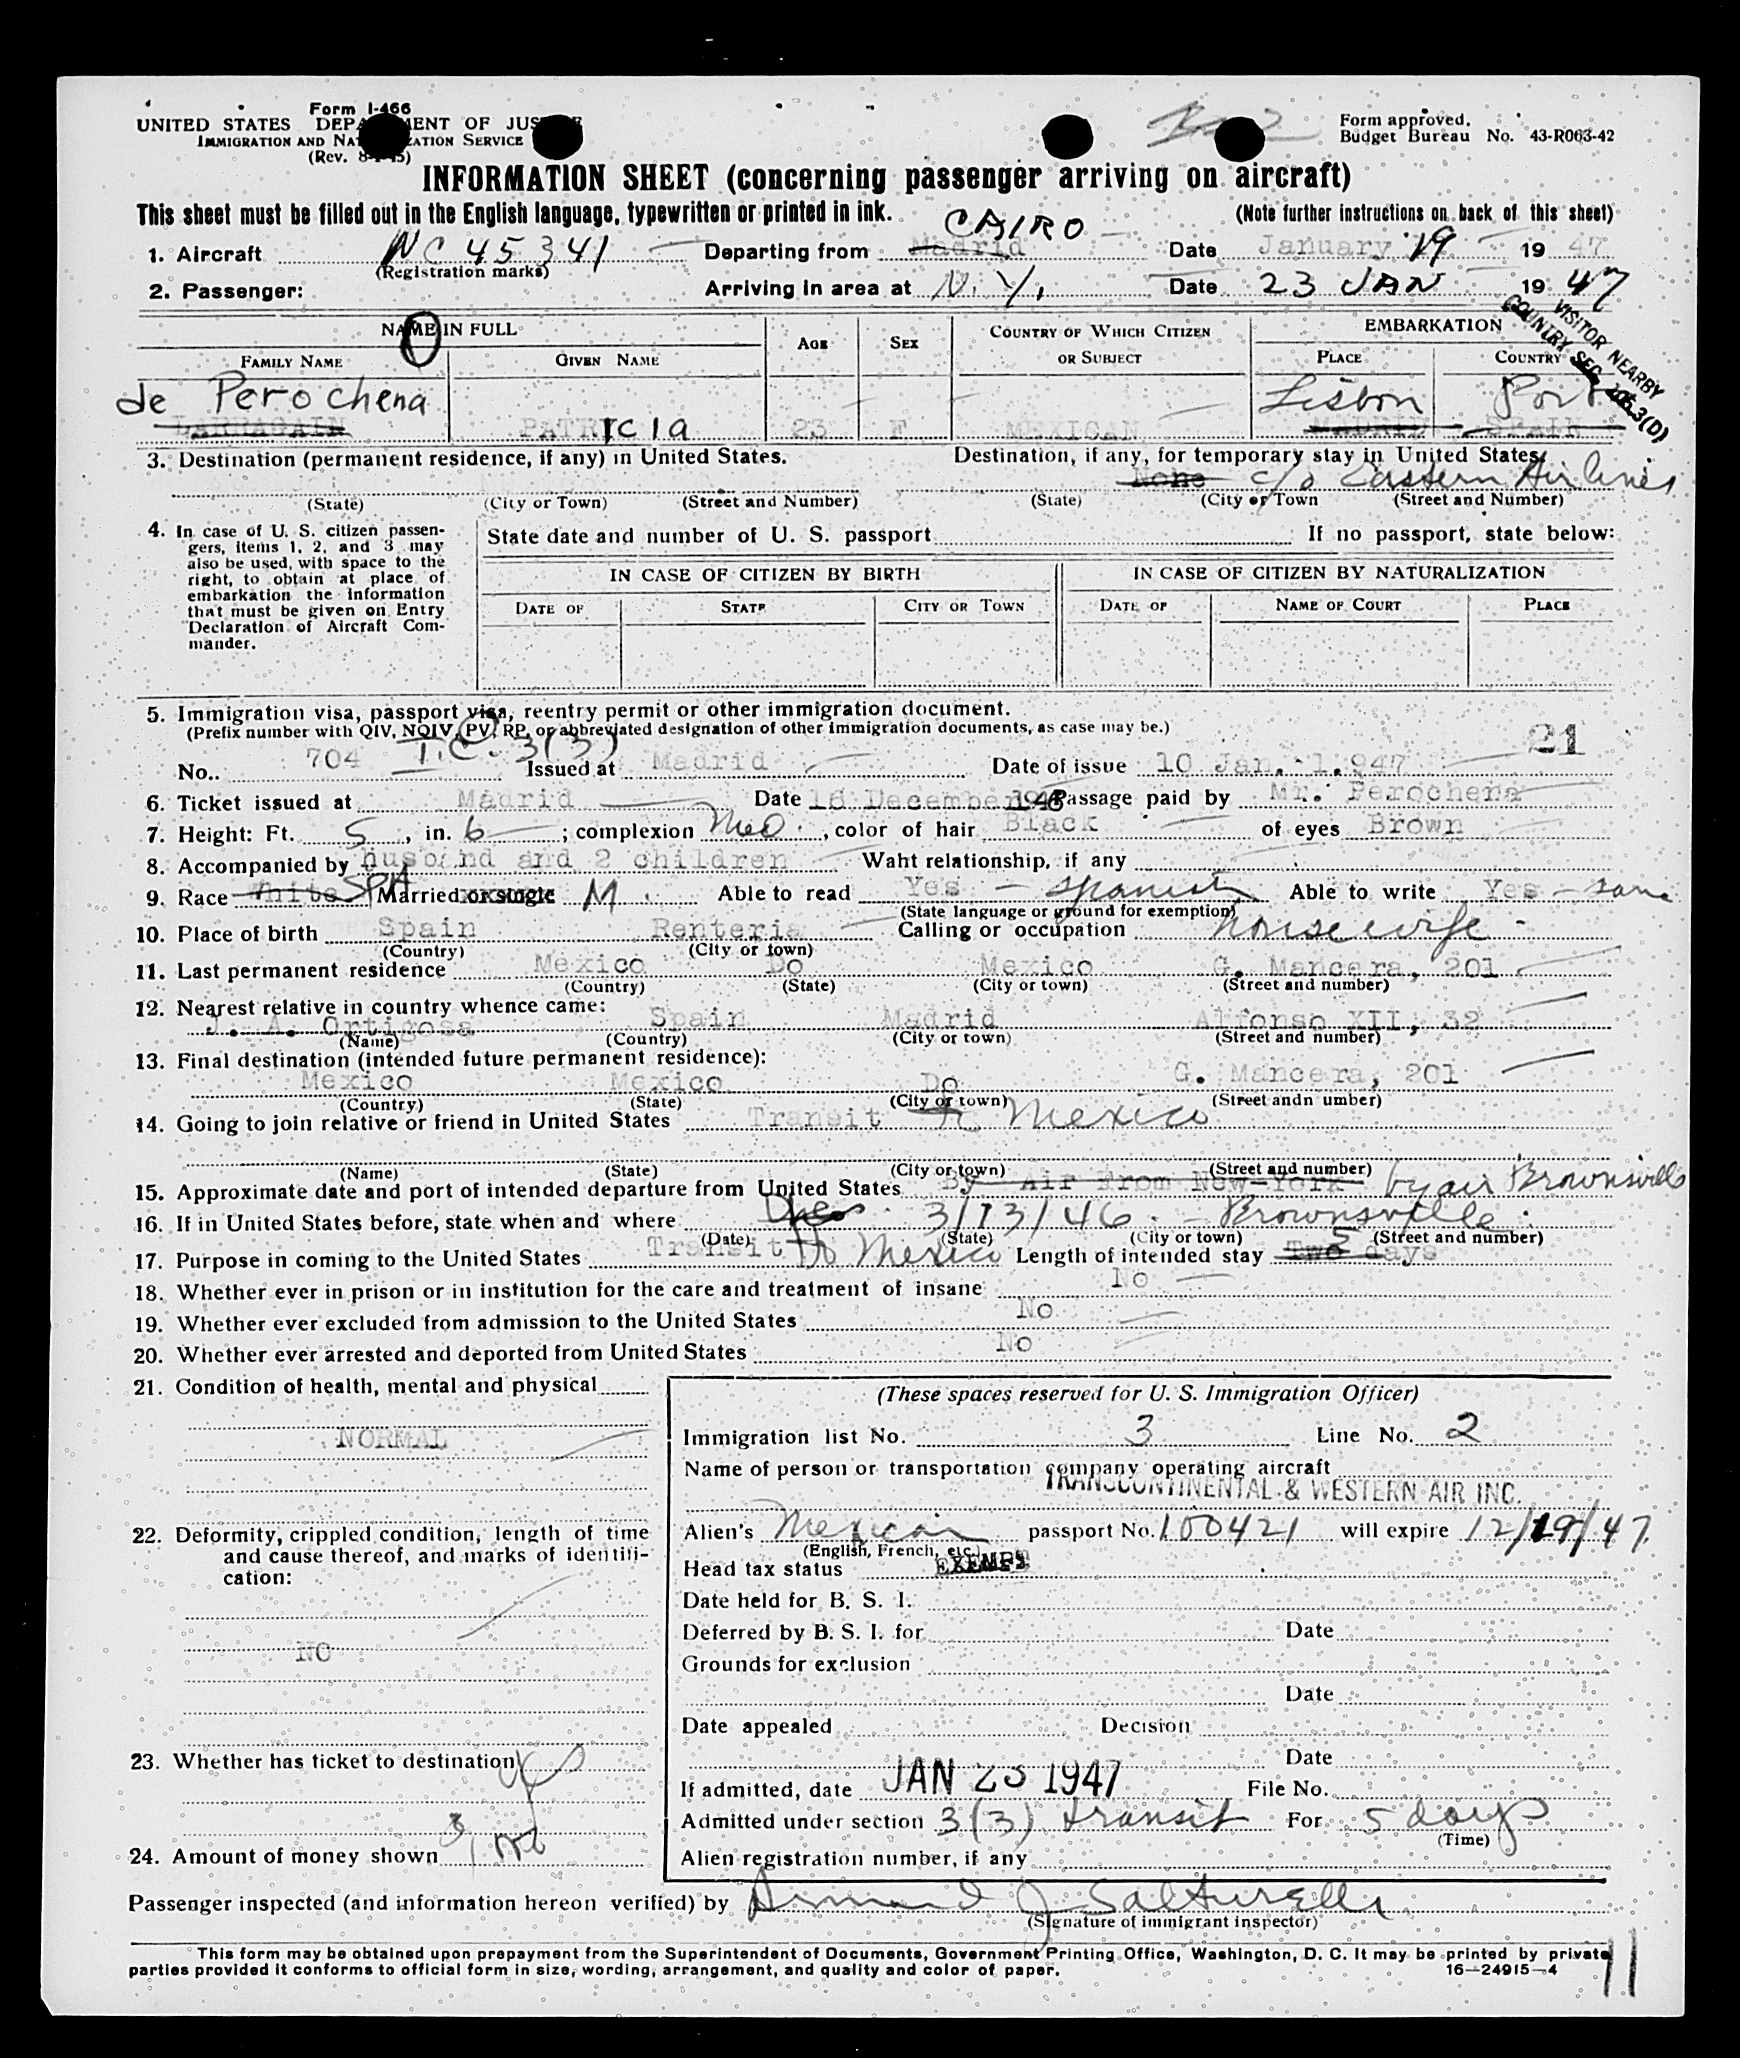 Form I-466
UNITED STATES DEPARTMENT OF JUSTICE
IMMIGRATION AND NATURALIZATION SERVICE
(Rev. 8-1-45)
Form approved.
Budget Bureau No. 43-R063-42
INFORMATION SHEET (concerning passenger arriving on aircraft)
This sheet must be filled out in the English language, typewritten or printed in ink.
(Note further instructions on back of this sheet)
CAIRO
1. Aircraft NC 45341 Departing from Madrid Date January 19 1947
(Registration marks)
2. Passenger: Arriving in area at N.Y. Date 23 JAN 1947
VISITOR NEARBY
COUNTRY SEC. 3(D)
NAME IN FULL AGE SEX COUNTRY OF WHICH CITIZEN OR SUBJECT EMBARKATION
FAMILY NAME GIVEN NAME PLACE COUNTRY
de Perochena Lisbon Port
LARRAGAIN PATRICIA 23 F MEXICAN MADRID SPAIN
3. Destination (permanent residence, if any) in United States. Destination, if any, for temporary stay in United States.
None c/o Eastern Air Lines
(State) (City or Town) (Street and Number) (State) (City or Town (Street and Number)
4. In case of U. S. citizen passengers, items 1, 2, and 3 may
also be used, with space to the
right, to obtain at place of
embarkation the information
that must be given on Entry
Declaration of Aircraft Commander.
State date and number of U. S. passport If no passport, state below:
IN CASE OF CITIZEN BY BIRTH IN CASE OF CITIZEN BY NATURALIZATION
DATE OF STATE CITY OR TOWN DATE OF NAME OF COURT PLACE
5. Immigration visa, passport visa, reentry permit or other immigration document.
(Prefix number with QIV, NQIV, PV, RP, or abbreviated designation of other immigration documents, as case may be.)
21
No. 704 T.C. 3(3) Issued at Madrid Date of issue 10 Jan. 1.947
6. Ticket issued at Madrid Date 18 December 1946 Passage paid by Mr. Perochena
7. Height: Ft. 5, in. 6; complexion Med., color of hair Black of eyes Brown
8. Accompanied by husband and 2 children Waht relationship, if any
9. Race White SPA Married or single M. Able to read Yes - Spanish Able to write Yes - same
(State language or ground for exemption)
10. Place of birth Spain Renteria Calling or occupation Housewife -
(Country) (City or town)
11. Last permanent residence Mexico Do Mexico G. Mancera, 201
(Country) (State) (City or town) (Street and number)
12. Nearest relative in country whence came:
J. A. Ortigosa Spain Madrid Alfonso XII, 32
(Name) (Country) (City or town) (Street and number)
13. Final destination (intended future permanent residence):
Mexico Mexico Do G. Mancera, 201
(Country) (State) (City or town) (Street andn umber)
14. Going to join relative or friend in United States Transit to Mexico
(Name) (State) (City or town) (Street and number)
15. Approximate date and port of intended departure from United States By Air From New-York by air Brownsville
16. If in United States before, state when and where 3/13/46. - Brownsville.
(Date) (State) (City or town) (Street and number)
17. Purpose in coming to the United States Transit to Mexico Length of intended stay Two 5 days
18. Whether ever in prison or in institution for the care and treatment of insane No
19. Whether ever excluded from admission to the United States No
20. Whether ever arrested and deported from United States No
21. Condition of health, mental and physical
NORMAL
22. Deformity, crippled condition, length of time
and cause thereof, and marks of identification:
NO
23. Whether has ticket to destination yes
24. Amount of money shown
(These spaces reserved for U. S. Immigration Officer)
Immigration list No. 3 Line No. 2
Name of person or transportation company operating aircraft
TRANSCONTINENTAL & WESTERN AIR INC.
Alien's Mexican passport No. 100421 will expire 12/19/47
(English, French, etc.)
Head tax status EXEMPT
Date held for B. S. I.
Deferred by B. S. I. for Date
Grounds for exclusion
Date
Date appealed Decision
Date
If admitted, date JAN 23 1947 File No.
Admitted under section 3(3) transit For 5 days
(Time)
Alien registration number, if any
Passenger inspected (and information hereon verified) by Armand J Salturelli
(Signature of immigrant inspector)
This form may be obtained upon prepayment from the Superintendent of Documents, Government Printing Office, Washington, D. C. It may be printed by private
parties provided it conforms to official form in size, wording, arrangement, and quality and color of paper.
16—24915-4
11